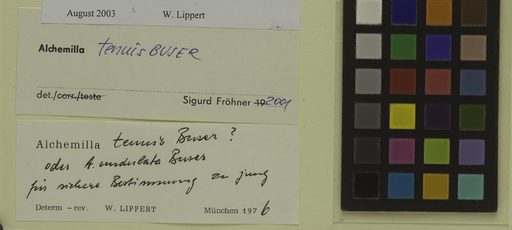 August 2003 W. Lippert
Alchemilla tenuis BUSER
det./corr./teste Sigurd Fröhner 19 2001
Alchemilla tenuis Buser ?
oder A. undulata Buser
für sichere Bestimmung zu jung
Determ – rev. W. LIPPERT München 1976